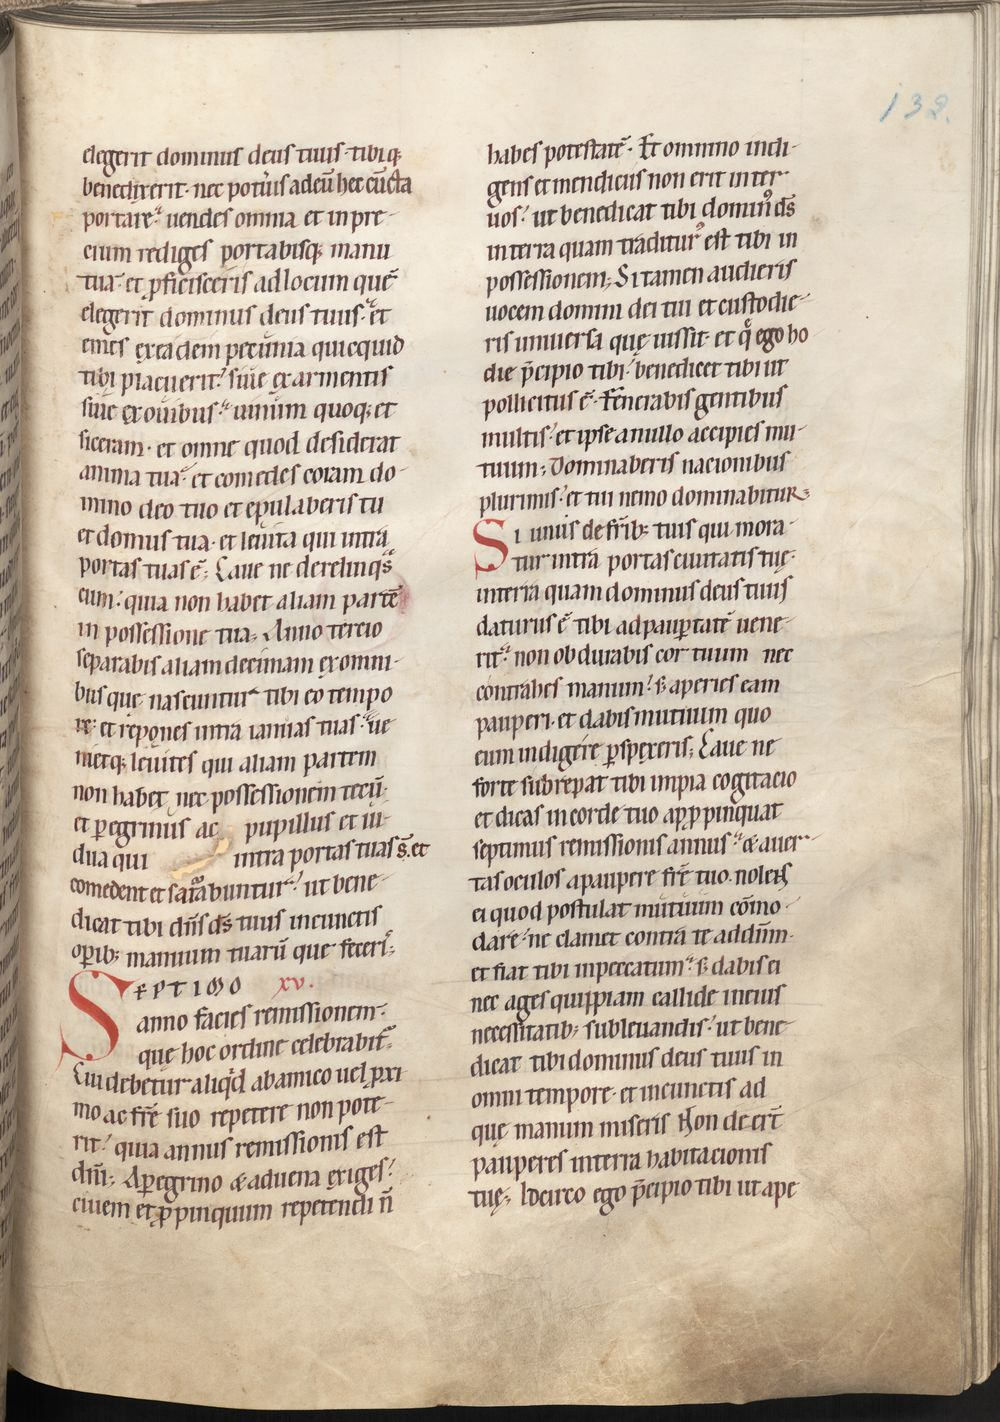 132.
elegerit dominus deus tuus· tibiq;
benedixerit· nec potuis adeū hec cūcta
portare· uendes omnia et in pre-
cium rediges portabisq; manu
tua· et ꝓficisceris ad locum quē
elegerit dominus deus tuus· et
emes ex eadem pecunia quicquid
tibi placuerit· siue ex armentis
siue ex ouibus· uinum quoq; et
siceram· et omne quod desiderat
anima tua· et comedes coram do-
mino deo tuo et epulaberis tu
et domus tua· et leuita qui intra
portas tuas ē; Caue ne derelinqͣs
eum· quia non habet aliam partē
in possessione tua; Anno tercio
separabis aliam decimam ex omni-
bus que nascuntur tibi eo tempo
re· et repones intra ianuas tuas· ue
nietq; leuites qui aliam partem
non habet nec possessionem tecū·
et ꝑegrinus ac pupillus et ui-
dua qui intra portas tuas s̄· et
comedent et saturabuntur· ut bene-
dicat tibi dn̄s ds̄ tuus in cunctis
oꝑib; manuum tuarū que fecerı̄s;
SEPTIMO xv.
anno facies remissionem·
quę hoc ordine celebrabit᷑
Cui debetur aliqͥd ab amico uel ꝓxi
mo ac fr̄e suo repetere non pote-
rit· quia annus remissionis est
dn̄i; A ꝑegrino & aduena exiges·
ciuem et ꝓpinquum repetendi n̄
habes potestatē· Et omnino indi-
gens et mendicus non erit inter
uos· ut benedicat tibi dominꝰ ds̄
in terra quam traditurꝰ est tibi in
possessionem; Si tamen audieris
uocem domini dei tui et custodie-
ris uniuersa quę iussit· et qͣ ego ho
die p̄cipio tibi· benedicet tibi ut
pollicitus ē· Fenerabis gentibus
multis· et ipse a nullo accipies mu-
tuum; Dominaberis nacionibus
plurimis· et tui nemo dominabitur;
Si unus de fr̄ib; tuis qui mora-
tur intra portas ciuitatis tuę·
in terra quam dominus deus tuus
daturus ē tibi ad pauꝑtatē uene-
rit· non obdurabis cor tuum nec
contrahes manum· s; aperies eam
pauperi· et dabis mutuum quo
eum indigere ꝑspexeris; Caue ne
forte subrepat tibi impia cogitacio
et dicas in corde tuo appropinquat
septimus remissionis annus· & auer-
tas oculos a paupere fr̄e tuo· nolens
ei quod postulat mutuum cōmo-
dare· ne clamet contra te ad dn̄m·
et fiat tibi in peccatum· s; dabis ei
nec ages quippiam callide in eius
necessitatib; subleuandis· ut bene-
dicat tibi dominus deus tuus in
omni tempore· et in cunctis ad
quę manum miseris Non deer̄t
pauperes in terra habitacionis
tuę; Idcirco ego p̄cipio tibi ut ape